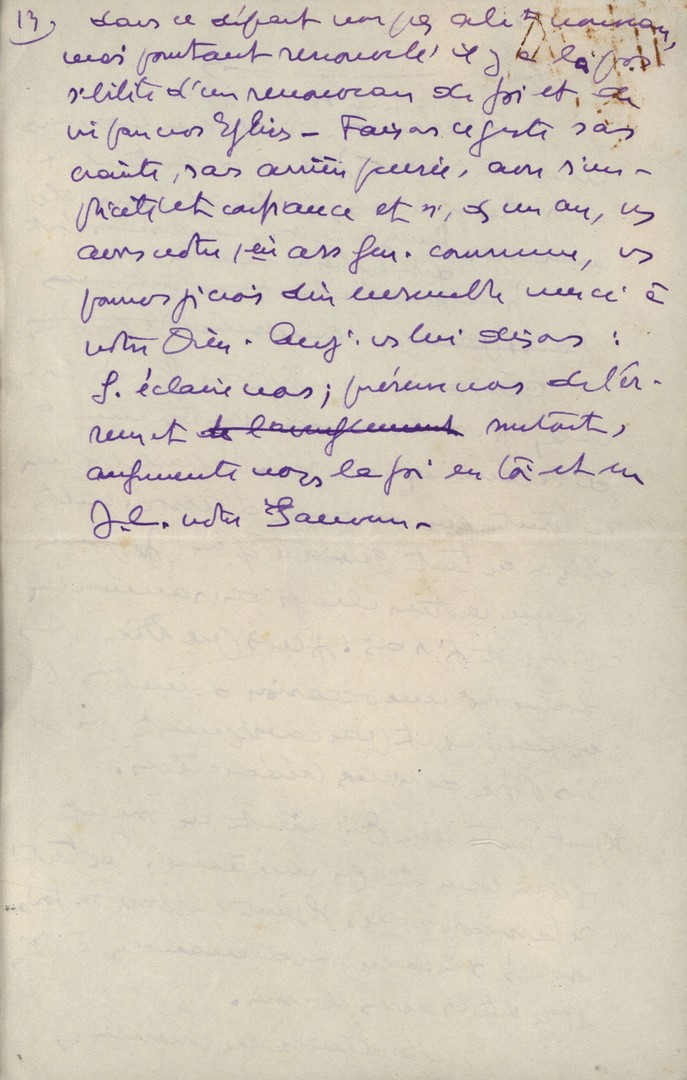 13) dans ce départ non pas absolt nouveau,
mais pourtant renouvelé il y a la pos-
sibilité d'un renouveau de foi et de
vie pour nos Eglises - Faisons ce geste sans
crainte, sans arrière pensée, avec sim-
plicité et confiance et si, ds un an, ns
avons notre 1ère ass gén. commune, ns
pourrons dire ensemble merci à
notre Dieu. Aujr. ns lui disons :
S. éclaire nous ; préserve nous de l'er-
reur et de l'aveuglement surtout,
augmente nous la foi en toi et en
J.C. notre Sauveur. -